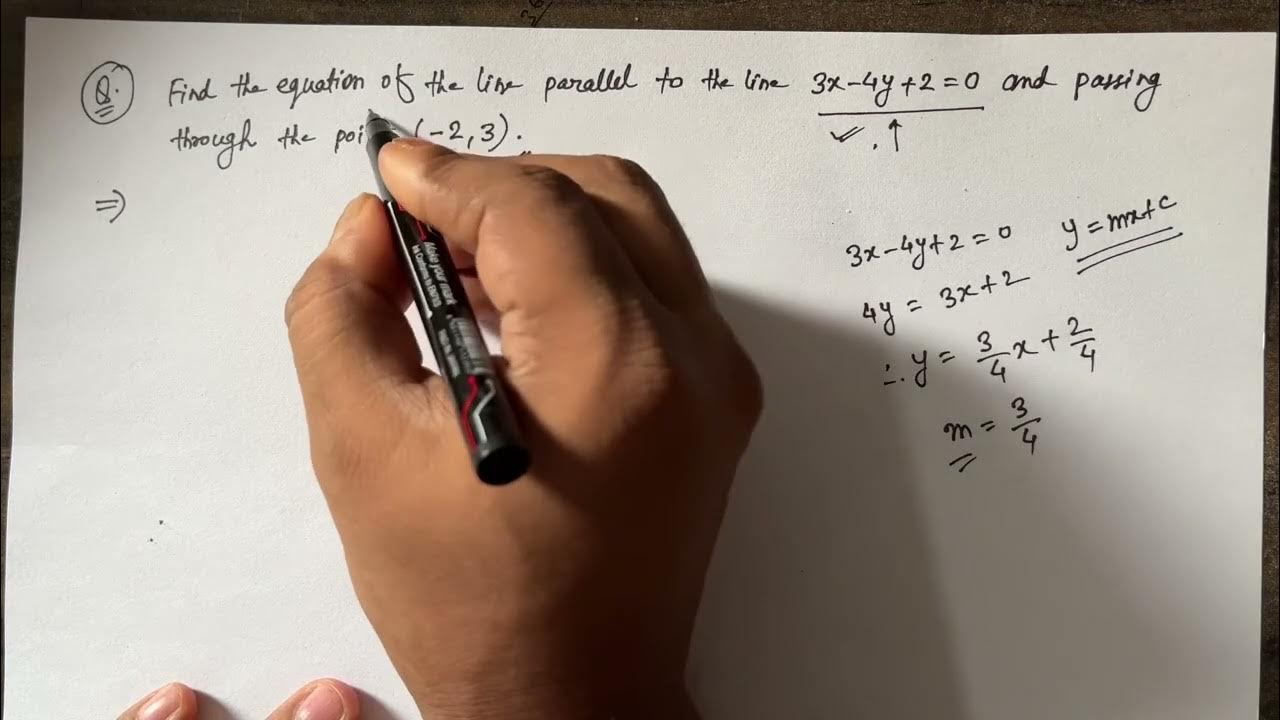 Q. Find the equation of the line parallel to the line 3x-4y+2=0 and passing
through the (-2,3).
⇒
3x-4y+2=0 y=mx+c
4y = 3x+2
∴ y = 3/4 x + 2/4
m = 3/4
Make your mark